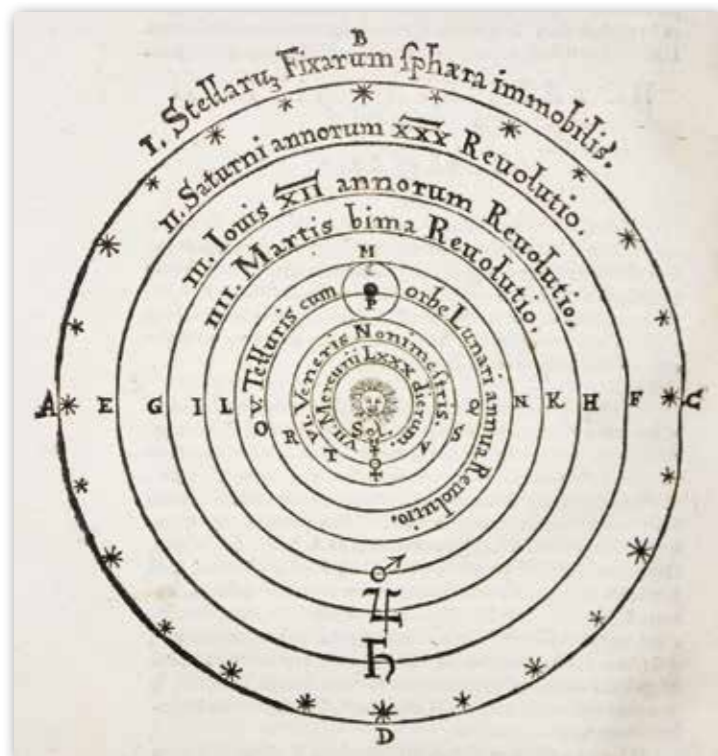 B
I. Stellaruʒ Fixarum ſphæra immobilis.
II. Saturni annorum XXX Reuolutio.
III. Iouis XII annorum Reuolutio.
IIII. Martis bima Reuolutio.
M
P
V. Telluris cum orbe Lunari annua Reuolutio.
VI. Veneris Nonimeſtris.
VII. Mercurii LXXX dierum.
SOL
A E G I L N K H F C
O R T S Q
D